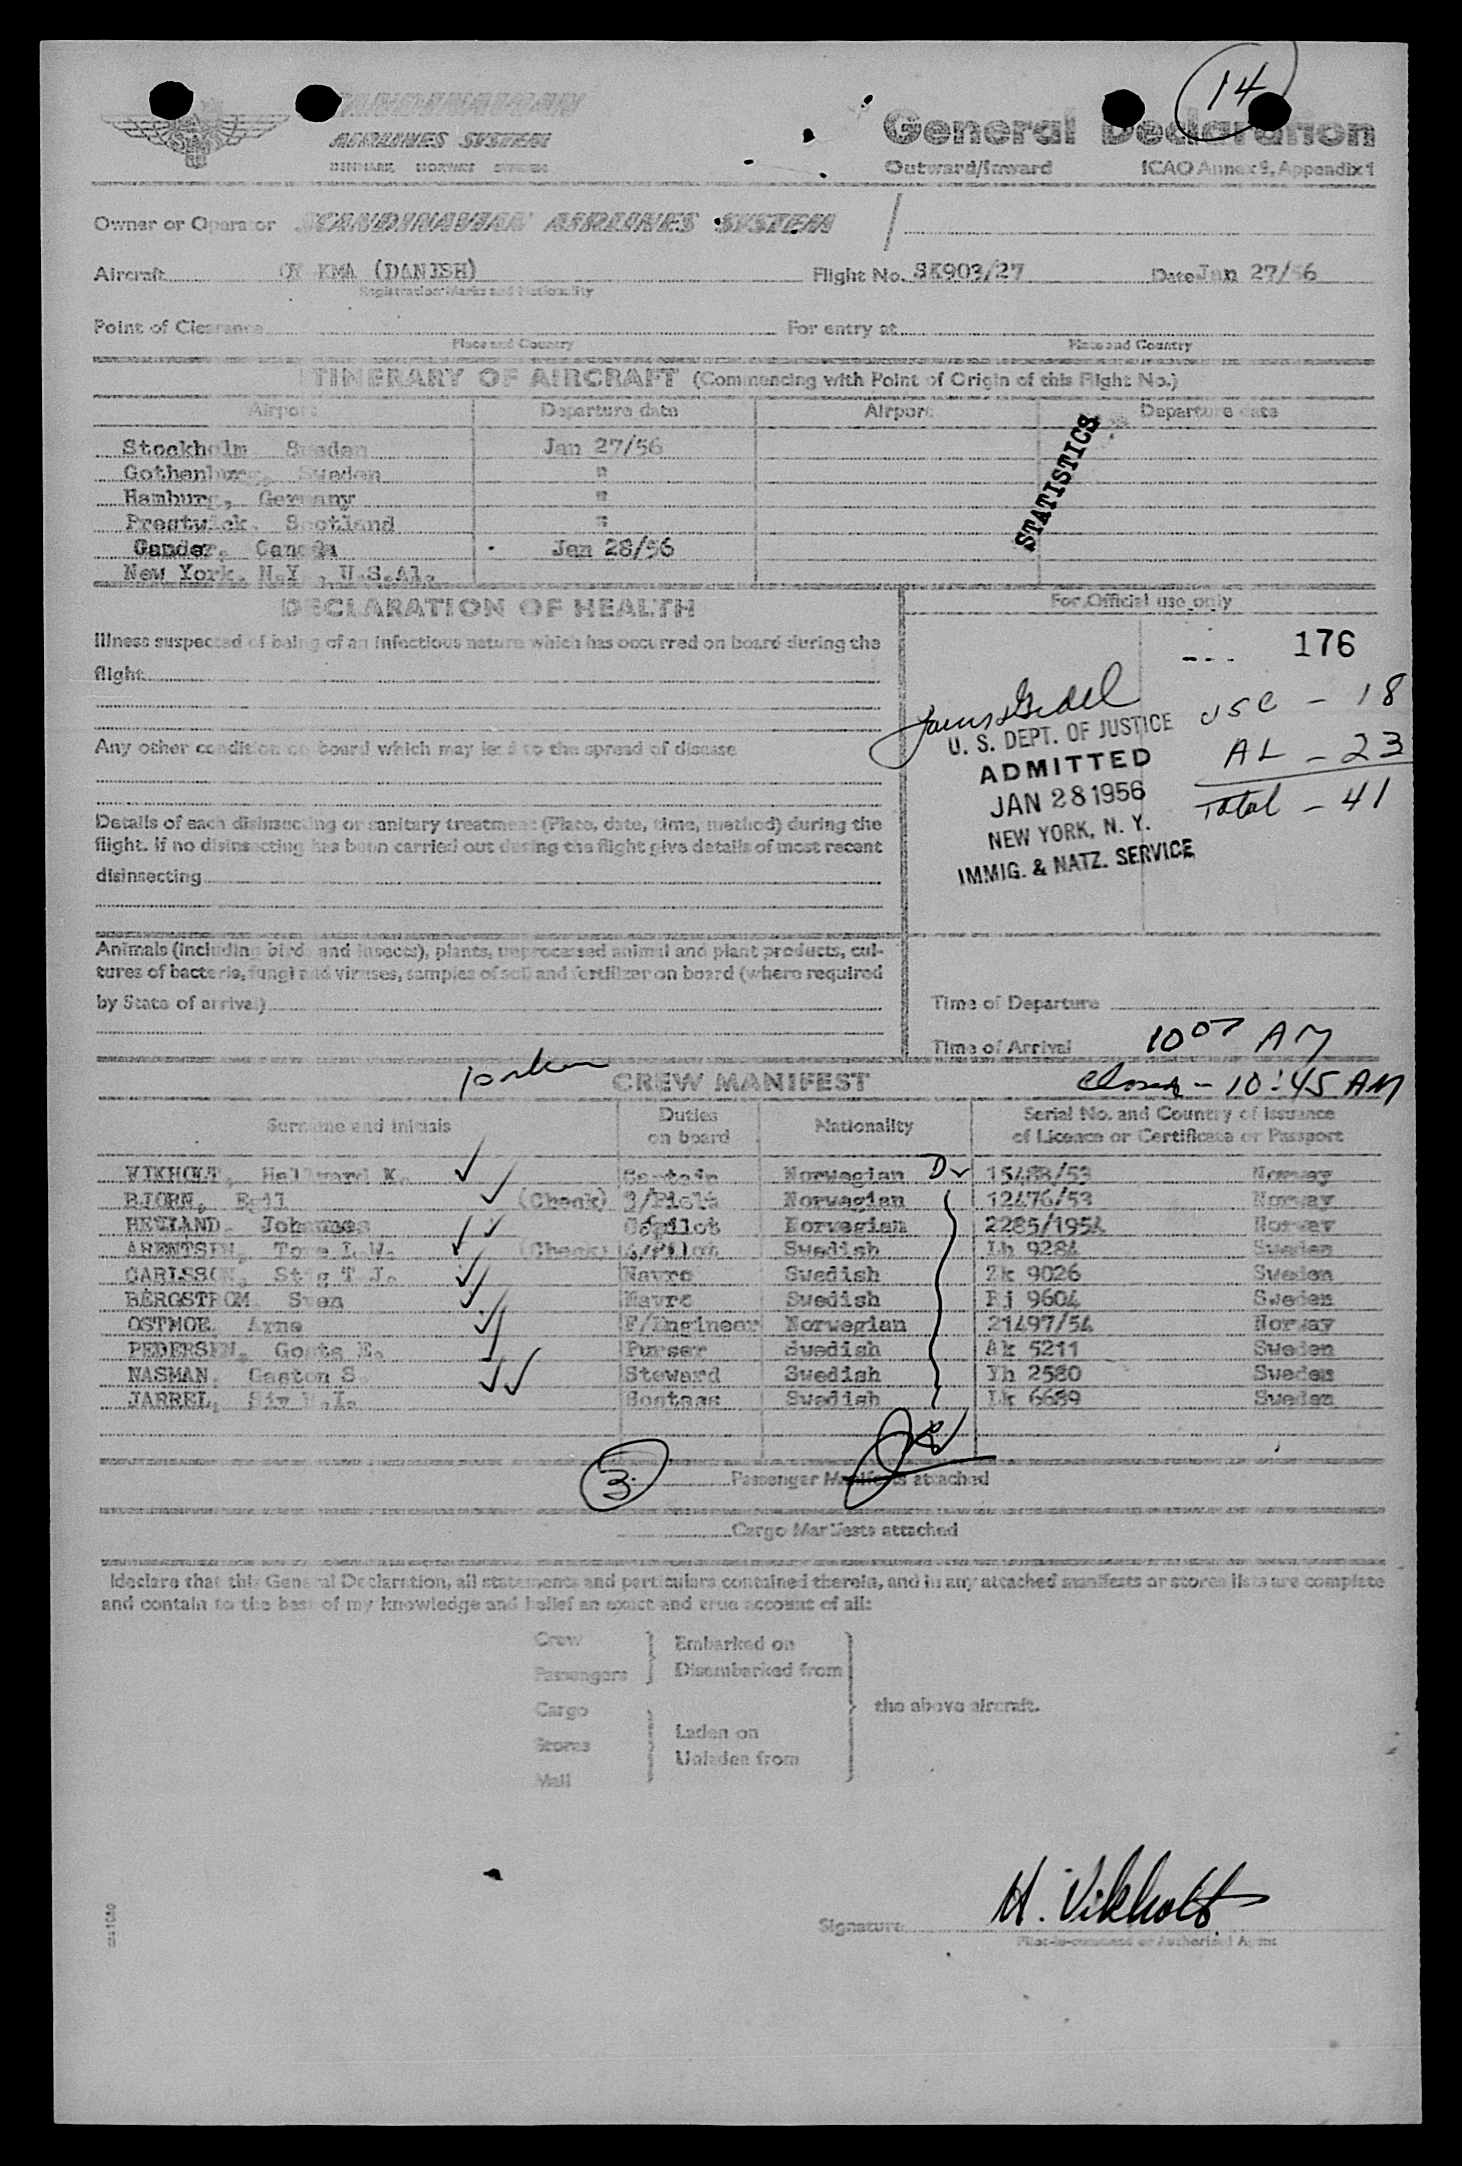 14
SCANDINAVIAN
AIRLINES SYSTEM
DENMARK NORWAY SWEDEN
General Declaration
Outward/Inward ICAO Annex 9, Appendix 1
Owner or Operator SCANDINAVIAN AIRLINES SYSTEM
Aircraft OY KMA (DANISH) Flight No. SK903/27 Date Jan 27/56
Registration Marks and Nationality
Point of Clearance For entry at
Place and Country Place and Country
ITINERARY OF AIRCRAFT (Commencing with Point of Origin of this Flight No.)
Airport Departure date Airport Departure date
STATISTICS
Stockholm Sweden Jan 27/56
Gothenburg, Sweden "
Hamburg, Germany "
Prestwick, Scotland "
Gander, Canada Jan 28/56
New York, N.Y., U.S.A.
DECLARATION OF HEALTH
For Official use only
Illness suspected of being of an infectious nature which has occurred on board during the
flight
176
USC - 18
U. S. DEPT. OF JUSTICE
AL - 23
ADMITTED
Total - 41
JAN 28 1956
NEW YORK, N. Y.
IMMIG. & NATZ. SERVICE
Any other condition on board which may lead to the spread of disease
Details of each disinsecting or sanitary treatment (Place, date, time, method) during the
flight. If no disinsecting has been carried out during the flight give details of most recent
disinsecting
Animals (including birds and insects), plants, unprocessed animal and plant products, cul-
tures of bacteria, fungi and viruses, samples of soil and fertilizer on board (where required
by State of arrival)
Time of Departure
Time of Arrival 10 07 AM
Closed - 10:45 AM
CREW MANIFEST
Surname and initials Duties on board Nationality Serial No. and Country of issuance of Licence or Certificate or Passport
VIKHOLT, Hallvard K. Captain Norwegian D 15488/53 Norway
BJORN, Egil (Check) 3/Pilot Norwegian 12476/53 Norway
HETLAND, Johannes Copilot Norwegian 2285/1954 Norway
ARENTSEN, Tore L.W. (Check) 4/Pilot Swedish Lh 9284 Sweden
CARLSSON, Stig T.J. Navro Swedish Zk 9026 Sweden
BERGSTROM Sven Navro Swedish Rj 9604 Sweden
OSTMOE, Arne F/Engineer Norwegian 21497/54 Norway
PEDERSEN, Gosta E. Purser Swedish Ak 5211 Sweden
NASMAN, Gaston S. Steward Swedish Yh 2580 Sweden
JARREL, Siv Hostess Swedish Lk 6689 Sweden
3 Passenger Manifests attached
Cargo Manifests attached
I declare that this General Declaration, all statements and particulars contained therein, and in any attached manifests or stores lists are complete
and contain to the best of my knowledge and belief an exact and true account of all:
Crew
Passengers
Embarked on
Disembarked from
Cargo
Stores
Mail
Laden on
Unladen from
the above aircraft.
Signature H. Vikholt
Pilot-in-command or Authorised Agent